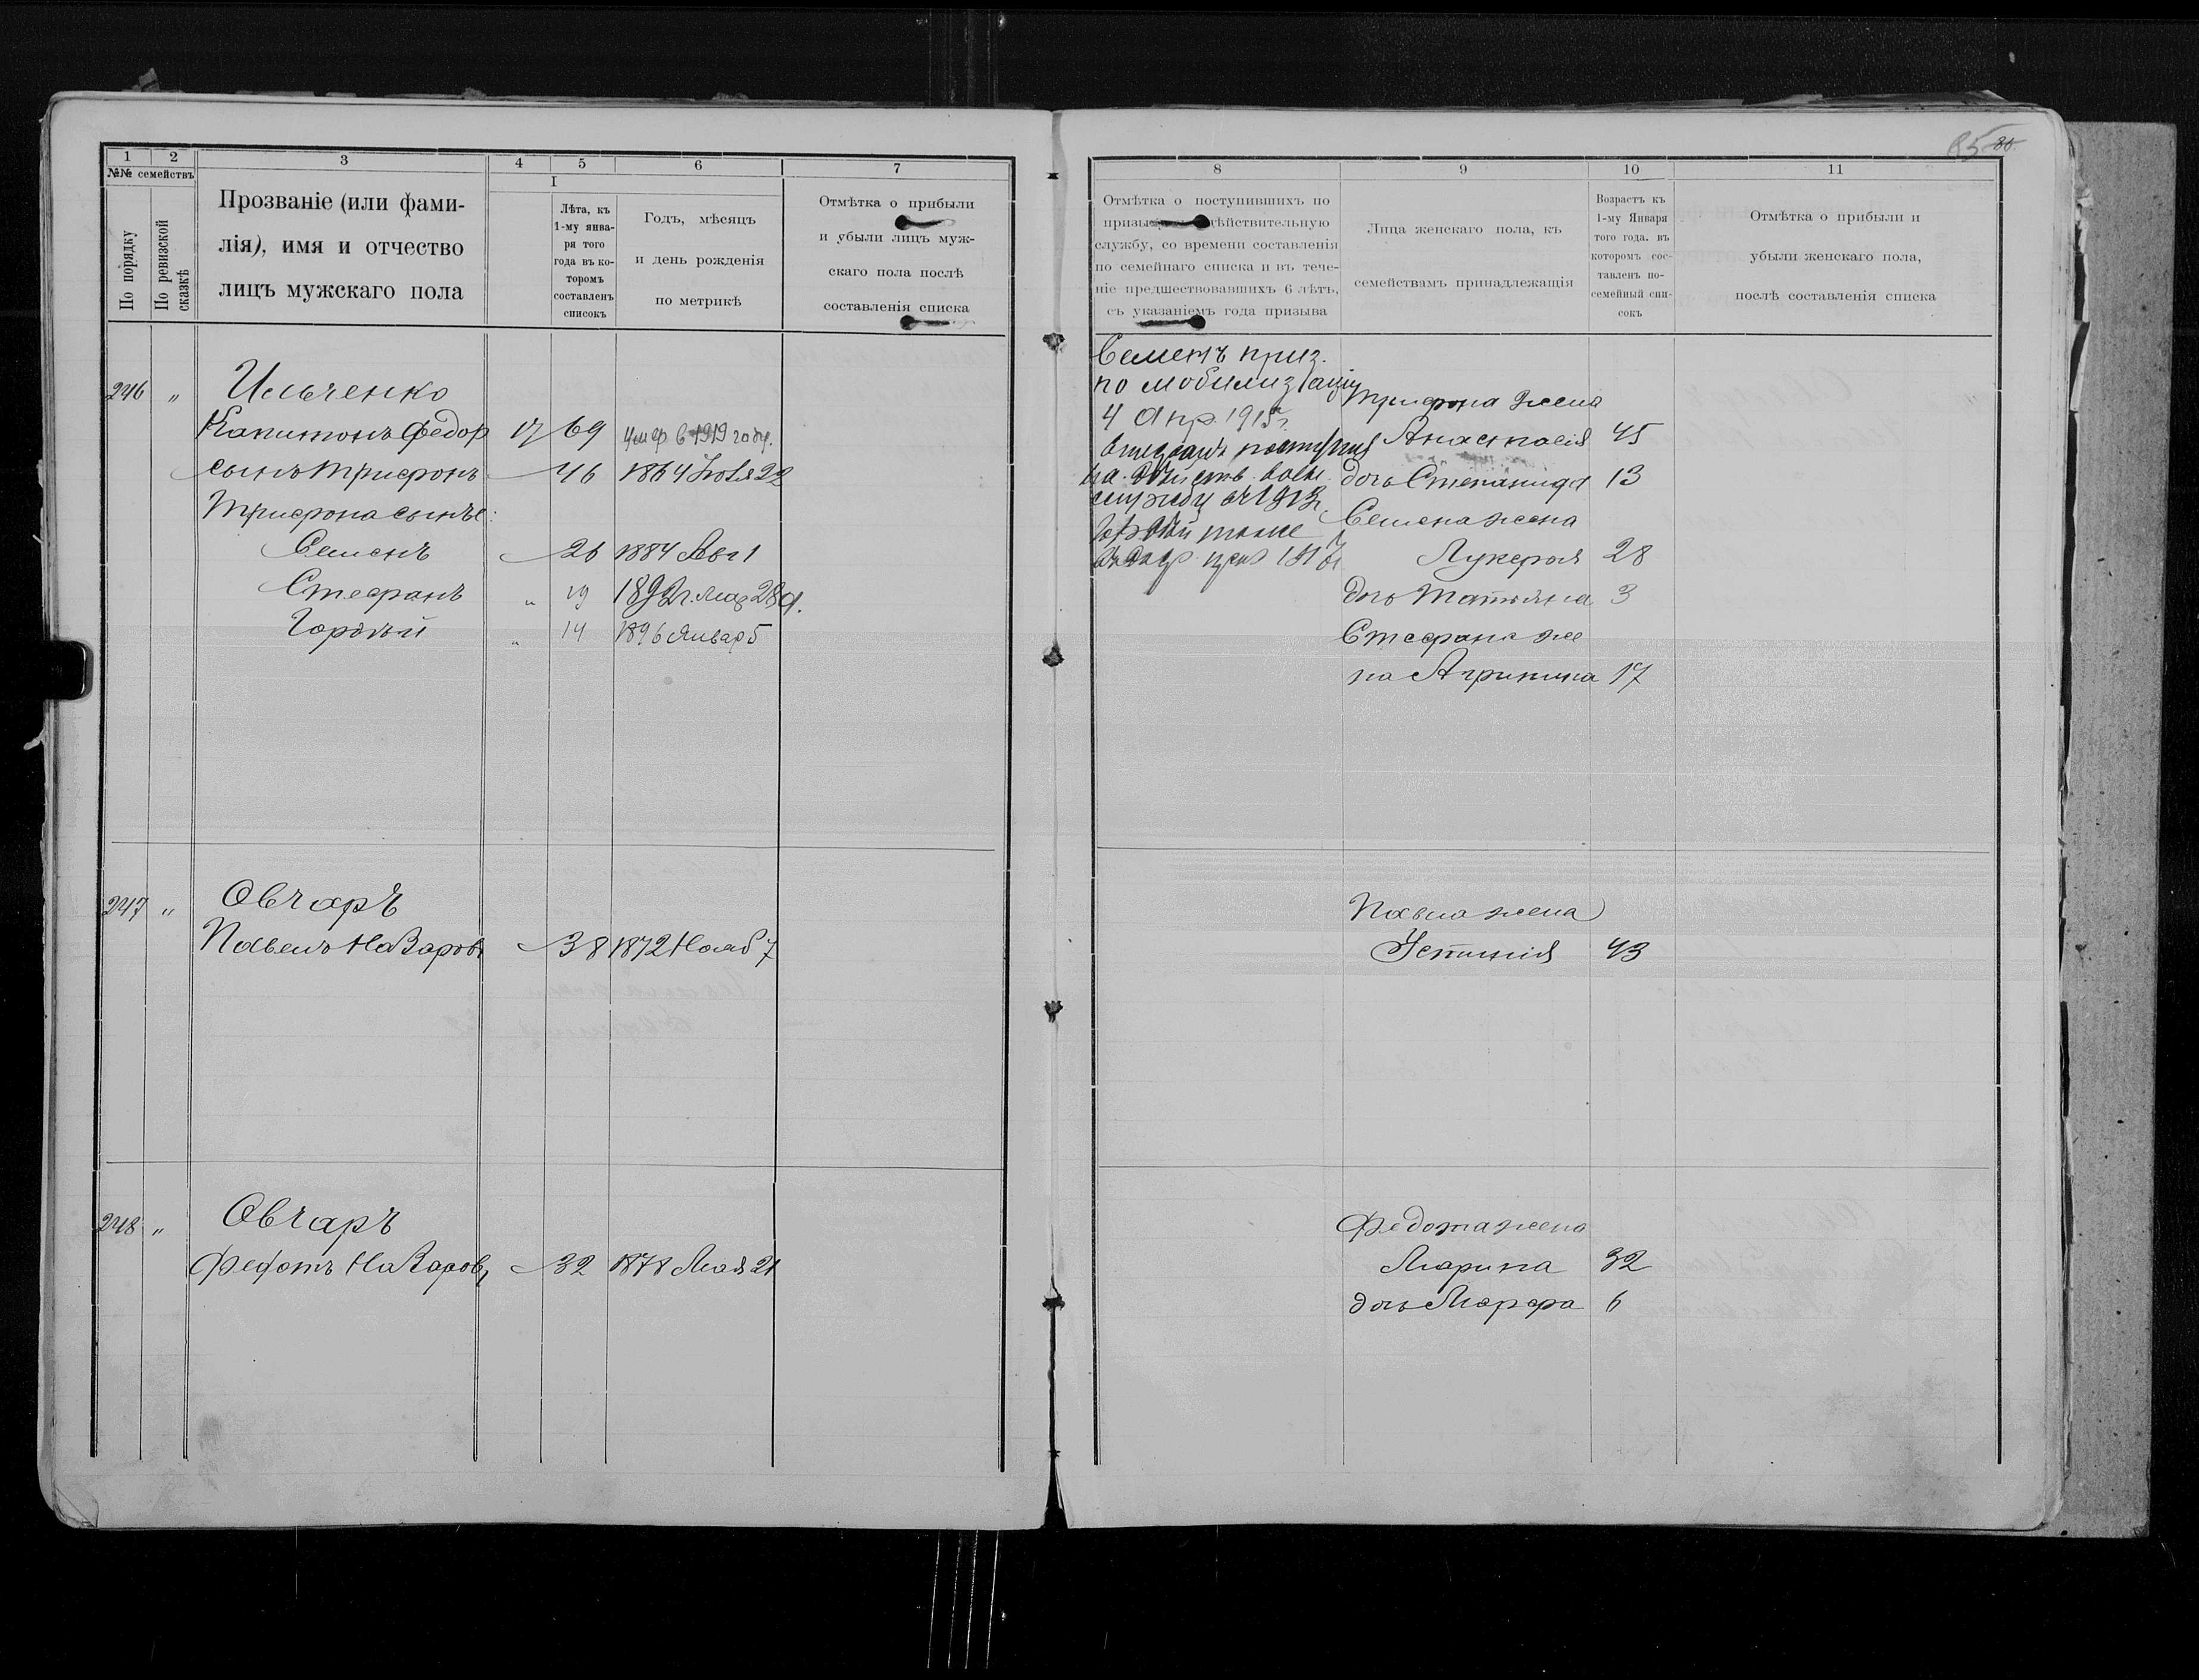 85 80
1 2 3 4 5 6 7
№№ семействъ
По порядку
По ревизской сказкѣ
Прозваніе (или фами-
лія), имя и отчество
лицъ мужскаго пола
I
Лѣта, къ
1-му янва-
ря того
года въ ко-
торомъ
составленъ
списокъ
Годъ, мѣсяцъ
и день рожденія
по метрикѣ
Отмѣтка о прибыли
и убыли лицъ муж-
скаго пола послѣ
составленія списка
246 " Ильченко
Капитонъ Федор 17 69 умер в 1919 году.
сынъ Трифонъ 46 1864 Іюля 22
Трифона сынъе:
Семенъ 26 1884 Авг 1
Стефанъ " 19 1892 г. мар 28 д.
Гордѣй " 14 1896 Январ 5
247 " Овчаръ
Павелъ Назаров 38 1872 Нояб 7
248 " Овчаръ
Федотъ Назаров 32 1878 Мая 21
8 9 10 11
Отмѣтка о поступившихъ по
призы дѣйствительную
службу, со времени составленія
по семейнаго списка и въ тече-
ніе предшествовавшихъ 6 лѣтъ,
съ указаніемъ года призыва
Лица женскаго пола, къ
семействамъ принадлежащія
Возрастъ къ
1-му Января
того года. въ
которомъ сос-
тавленъ по-
семейный спи-
сокъ
Отмѣтка о прибыли и
убыли женскаго пола,
послѣ составленія списка
Семенъ приз.
по мобилизаціи
4 Апр. 1915 г.
на дѣйств. воен.
службу
Трифона жена
Анастасія 45
дочь Степанида 13
Семена жена
Лукерья 28
дочь Татьяна 3
Стефана же
на Агрипина 17
Павла жена
Устинія 43
Федота жена
Марина 32
дочь Марфа 6